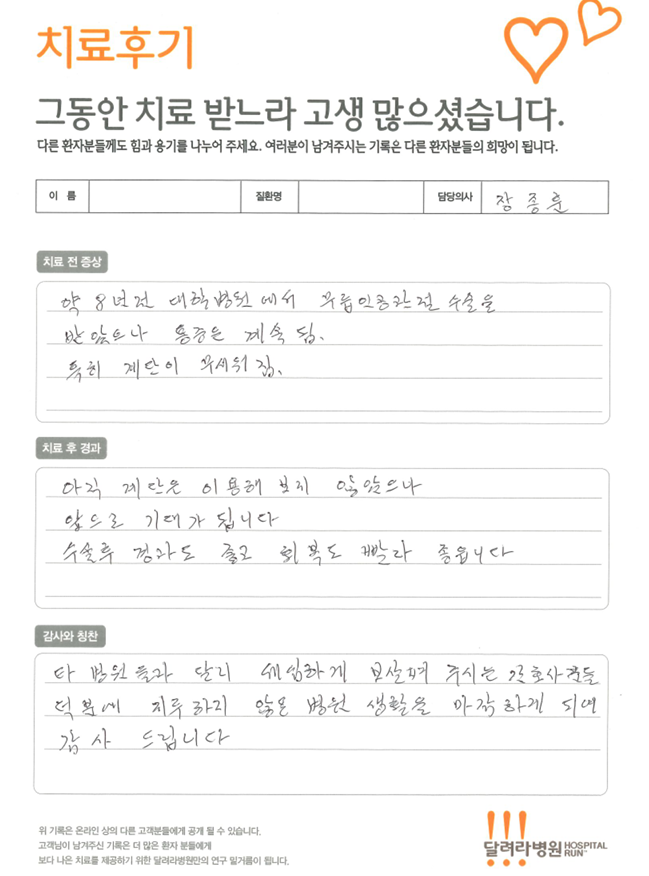 치료후기
그동안 치료 받느라 고생 많으셨습니다.
다른 환자분들께도 힘과 용기를 나누어 주세요. 여러분이 남겨주시는 기록은 다른 환자분들의 희망이 됩니다.
이 름 질환명 담당의사 장종훈
치료 전 증상
약 8년전 대학병원에서 무릎인공관절 수술을
받았으나 통증은 계속 됨.
특히 계단이 무서워짐.
치료 후 경과
아직 계단은 이용해 보지 않았으나
앞으로 기대가 됩니다
수술후 경과도 좋고 회복도 빨라 좋읍니다
감사와 칭찬
타 병원들과 달리 세심하게 보살펴 주시는 간호사분들
덕분에 지루하지 않은 병원 생활을 마감하게 되면
감사 드립니다
위 기록은 온라인 상의 다른 고객분들에게 공개 될 수 있습니다.
고객님이 남겨주신 기록은 더 많은 환자 분들에게
보다 나은 치료를 제공하기 위한 달려라병원만의 연구 밑거름이 됩니다.
달려라병원 HOSPITAL
RUN